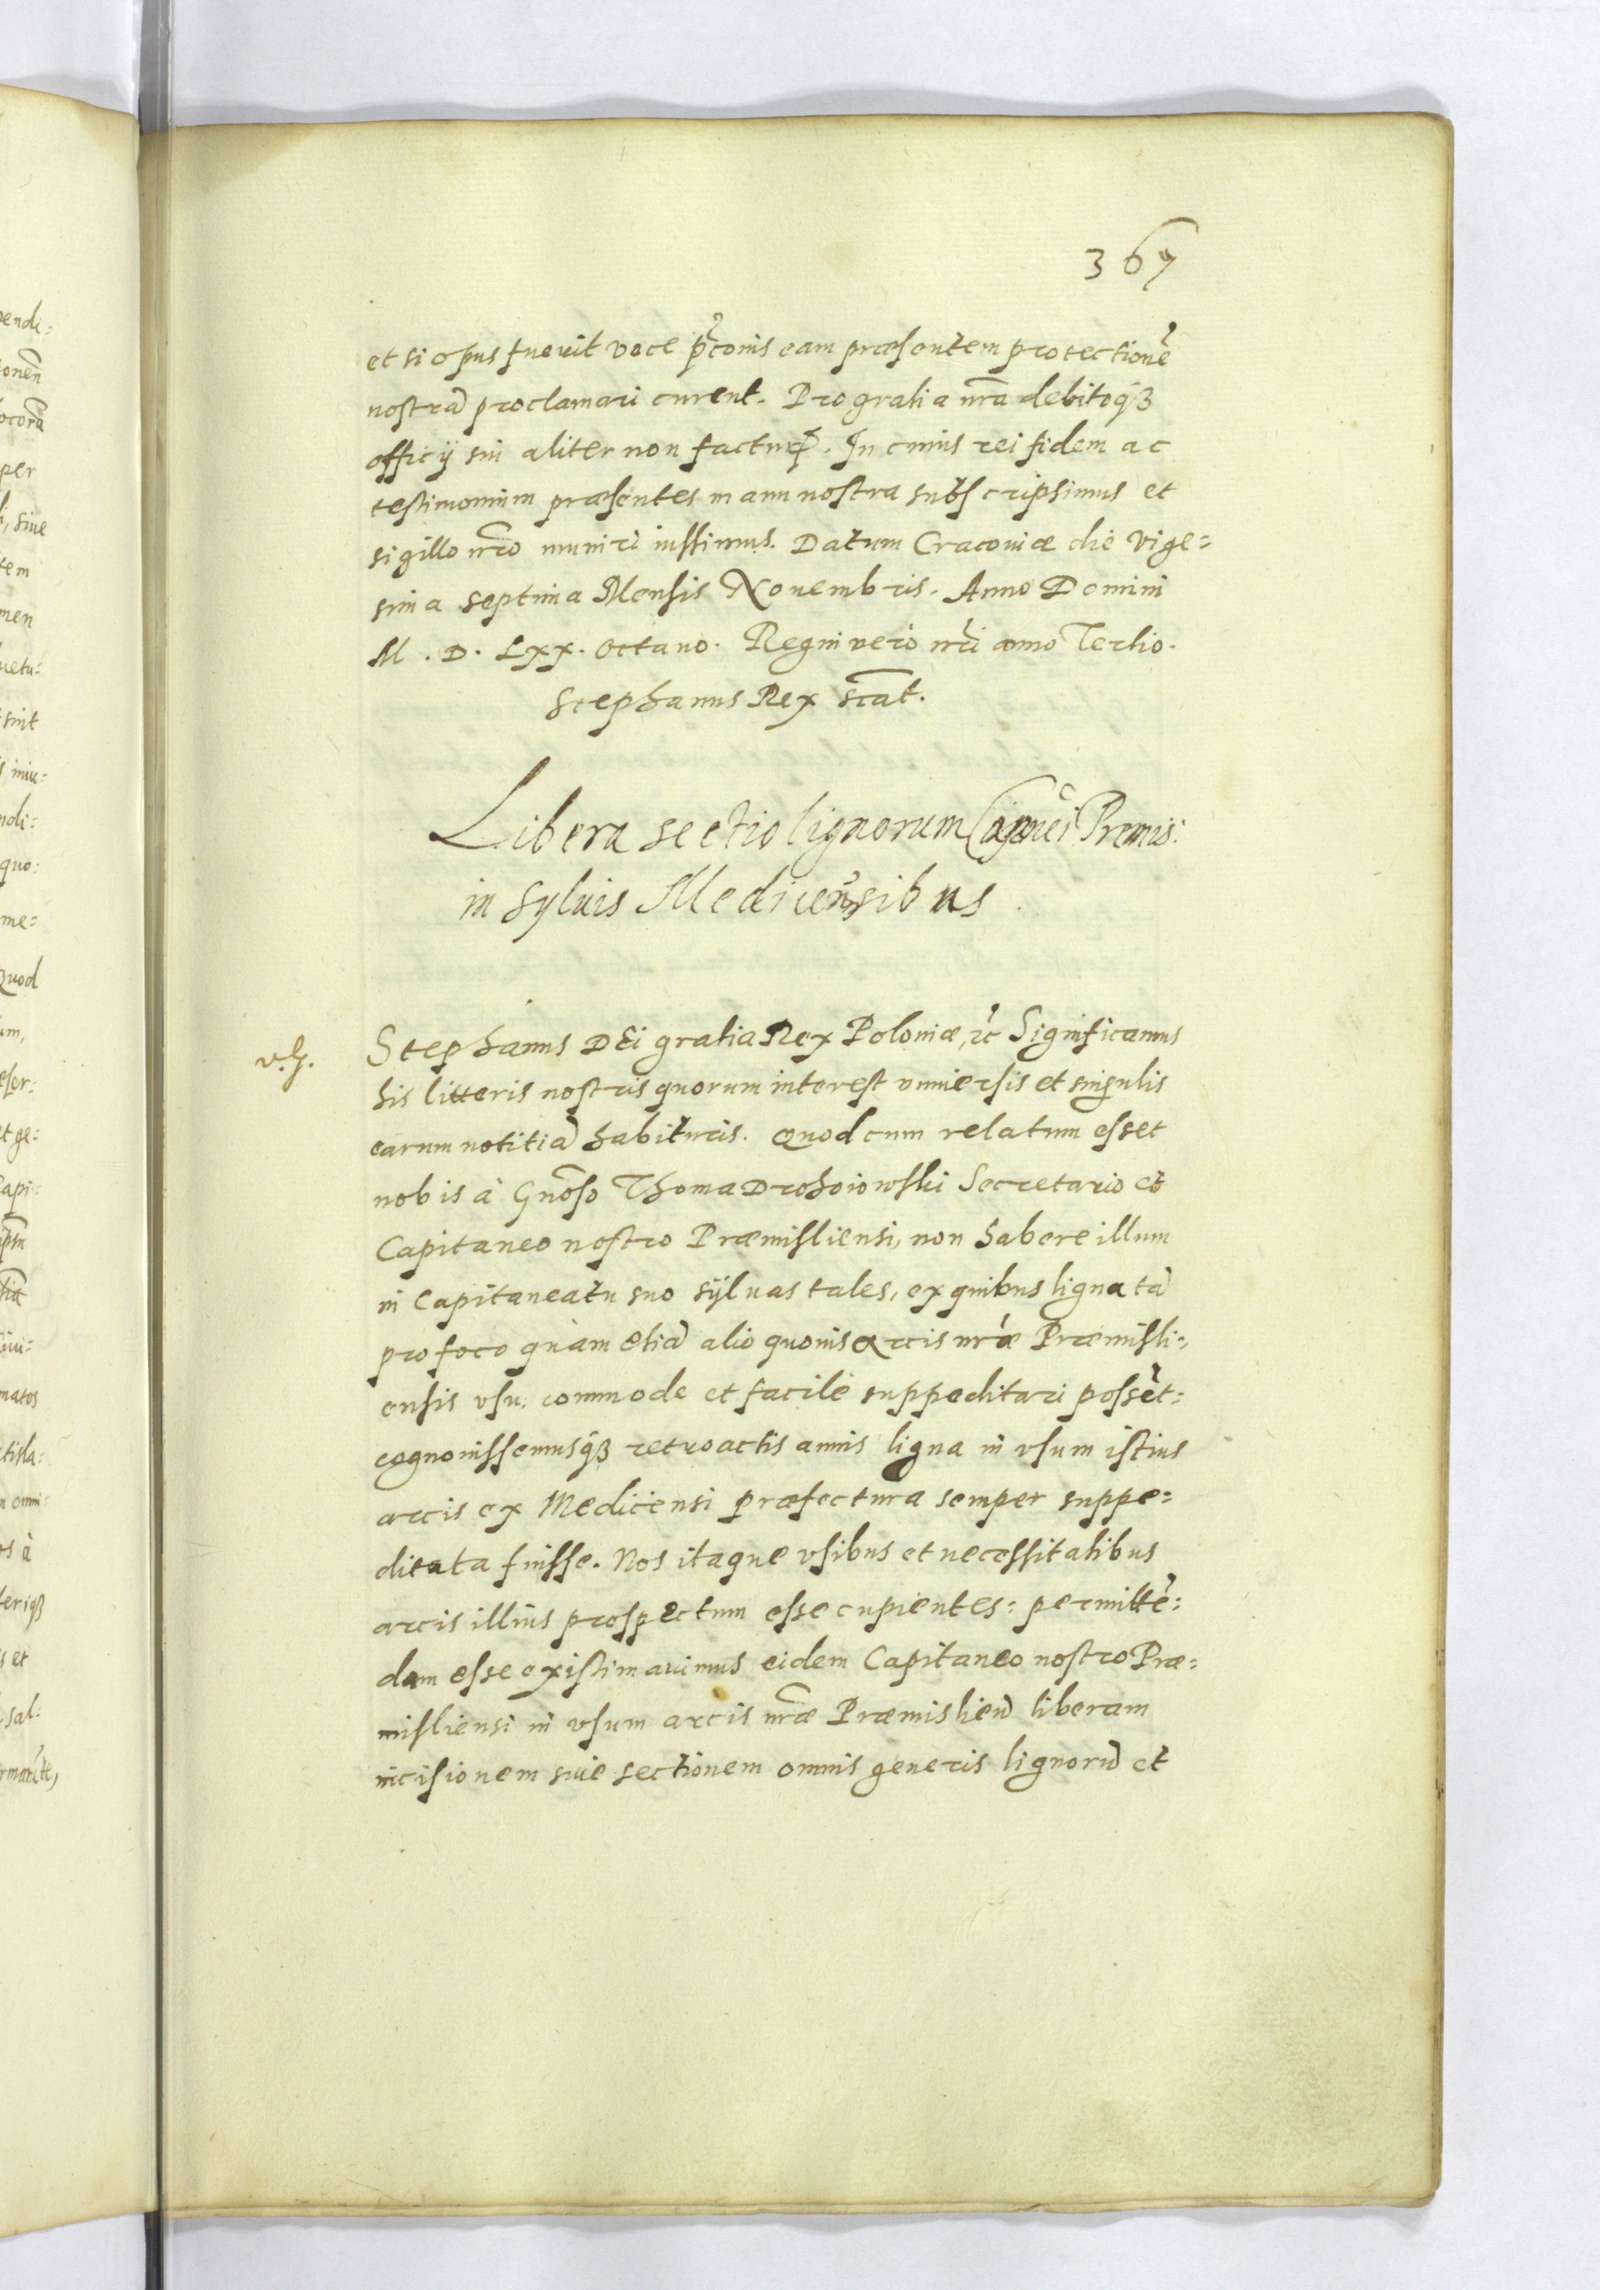 367
et si opus fuerit voce p̃conis eam præsentem protectionẽ
nostrã proclamari curent. Pro gratia nr̃a debitoq́ꝫ
officij sui aliter non facturi. In cuius rei fidem ac
testimonium præsentes manu nostra subscripsimus et
sigillo nr̃o muniri iussimus. Datum Cracouiæ die vige=
sima septima Mensis Nouembris. Anno Domini
M. D. LXX. octauo. Regni vero nr̃i anno Tertio.
Stephanus Rex sc̃at.
Libera sectio lignorum Premis:
in syluis Medicensibus.
Stephanus DEi gratia Rex Poloniæ, ꝛc Significamus
his litteris nostris quorum interest vniuersis et singulis
earum notitiã habituris. Quod cum relatum esset
nobis à Gñoso Thoma Drohoiowski Secretario et
Capitaneo nostro Præmisliensi, non habere illum
in Capitaneatu suo syluas tales, ex quibus ligna tã
pro foco quàm etiã alio quouis arcis nr̃æ Præmisli=
ensis vsu, commode et facilè suppeditari possẽt=
cognouissemusq́ꝫ retroactis annis ligna in vsum istius
arcis ex Medicensi præfectura semper suppe=
ditata fuisse. Nos itaque vsibus et necessitatibus
arcis illius prospectum esse cupientes: permittẽ=
dam esse existimauimus eidem Capitaneo nostro Præ=
misliensi in vsum arcis nr̃æ Præmislien̄ liberam
incisionem siue sectionem omnis generis lignorũ et
pendi=
per
siue
tem
men
sint
ndi=
quo=
me=
Quod
um,
et ge=
Capi=
matos
os à
et
sal=